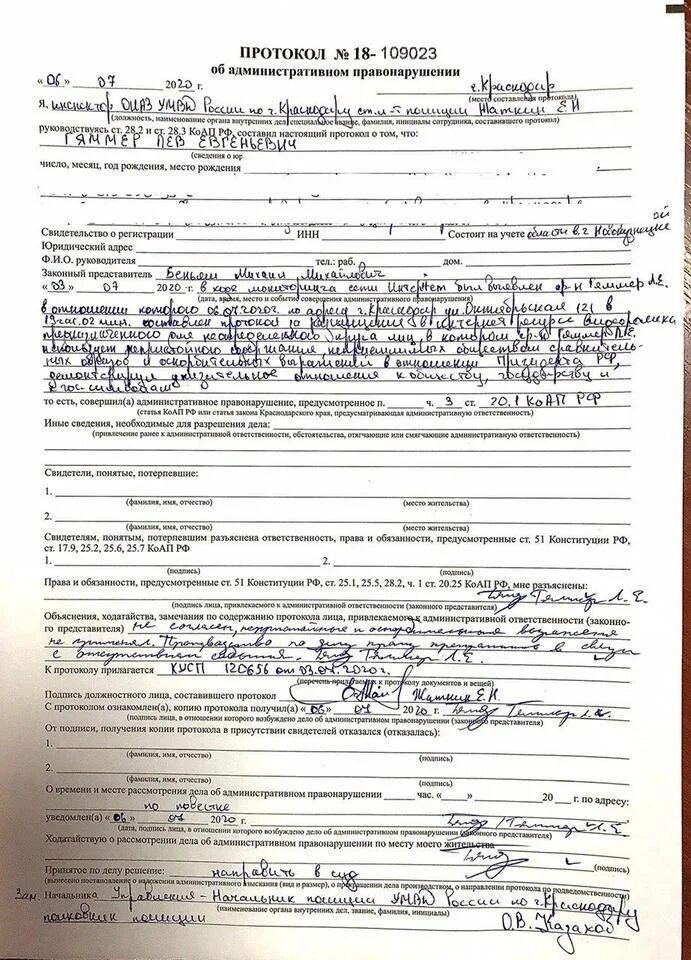 ПРОТОКОЛ № 18- 109023
об административном правонарушении
«06» 07 2020 г. г. Краснодар
(место составления протокола)
Я, инспектор ОИАЗ УМВД России по г. Краснодару ст. л-т полиции Жаткин Е.Н
(должность, наименование органа внутренних дел, специальное звание, фамилия, инициалы сотрудника, составившего протокол)
руководствуясь ст. 28.2 и ст. 28.3 КоАП РФ, составил настоящий протокол о том, что:
ГЯММЕР ЛЕВ ЕВГЕНЬЕВИЧ
(сведения о юр
число, месяц, год рождения, место рождения
Свидетельство о регистрации ИНН Состоит на учете области в г. Новокузнецке
Юридический адрес
Ф.И.О. руководителя тел.: раб. дом.
Законный представитель Беньяш Михаил Михайлович
«03» 07 2020 г. в ходе мониторинга сети Интернет был выявлен гр-н Гяммер Л.Е.
(дата, время, место и событие совершения административного правонарушения)
в отношении которого 06.07.2020г. по адресу г. Краснодар ул. Октябрьская 121 в
19 час. 02 мин. составлен протокол за размещение в интернет ресурс видеоролика
предназначенного для неопределенного круга лиц, в котором гр-н Гяммер Л.Е.
использует непристойного содержания неприемлимых обществом сравнитель-
ных образов и оскорбительных выражений в отношении Президента РФ,
демонстрируя унизительное отношение к обществу, государству и
гос. символам
то есть, совершил(а) административное правонарушение, предусмотренное п. ч. 3 ст. 20.1 КоАП РФ
(статья КоАП РФ или статья закона Краснодарского края, предусматривающая административную ответственность)
Иные сведения, необходимые для разрешения дела:
(привлечение ранее к административной ответственности, обстоятельства, отягчающие или смягчающие административную ответственность)
Свидетели, понятые, потерпевшие:
1.
(фамилия, имя, отчество) (место жительства)
2.
(фамилия, имя, отчество) (место жительства)
Свидетелям, понятым, потерпевшим разъяснена ответственность, права и обязанности, предусмотренные ст. 51 Конституции РФ,
ст. 17.9, 25.2, 25.6, 25.7 КоАП РФ
1. 2.
(подпись) (подпись)
Права и обязанности, предусмотренные ст. 51 Конституции РФ, ст. 25.1, 25.5, 28.2, ч. 1 ст. 20.25 КоАП РФ, мне разъяснены:
Гяммер Л.Е.
(подпись лица, привлекаемого к административной ответственности (законного представителя)
Объяснения, ходатайства, замечания по содержанию протокола лица, привлекаемого к административной ответственности (законно-
го представителя) не согласен, нецензурные и оскорбительные выражения
не применял. Производство по делу прошу прекратить в связи
с отсутствием события. Гяммер Л.Е.
К протоколу прилагается КУСП 120656 от 03.07.2020г.
(перечень прилагаемых к протоколу документов и вещей)
Подпись должностного лица, составившего протокол Жаткин Е.Н.
С протоколом ознакомлен(а), копию протокола получил(а) «06» 07 2020 г. Гяммер Л.Е.
(подпись лица, в отношении которого возбуждено дело об административном правонарушении (законного представителя)
От подписи, получения копии протокола в присутствии свидетелей отказался (отказалась):
1.
(фамилия, имя, отчество) (подпись)
2.
(фамилия, имя, отчество) (подпись)
О времени и месте рассмотрения дела об административном правонарушении час. «» 20 г. по адресу:
по повестке
уведомлен(а) «06» 07 2020 г. Гяммер Л.Е.
(дата, подпись лица, в отношении которого возбуждено дело об административном правонарушении (законного представителя)
Ходатайствую о рассмотрении дела об административном правонарушении по месту моего жительства
(подпись)
Принятое по делу решение: направить в суд
(вынесено постановление о наложении административного взыскания (вид и размер), о прекращении дела производством, о направлении протокола по подведомственности)
Зам. Начальника Управления - Начальник полиции УМВД России по г. Краснодару
(наименование органа внутренних дел, звание, фамилия, инициалы)
полковник полиции О.В. Казаков